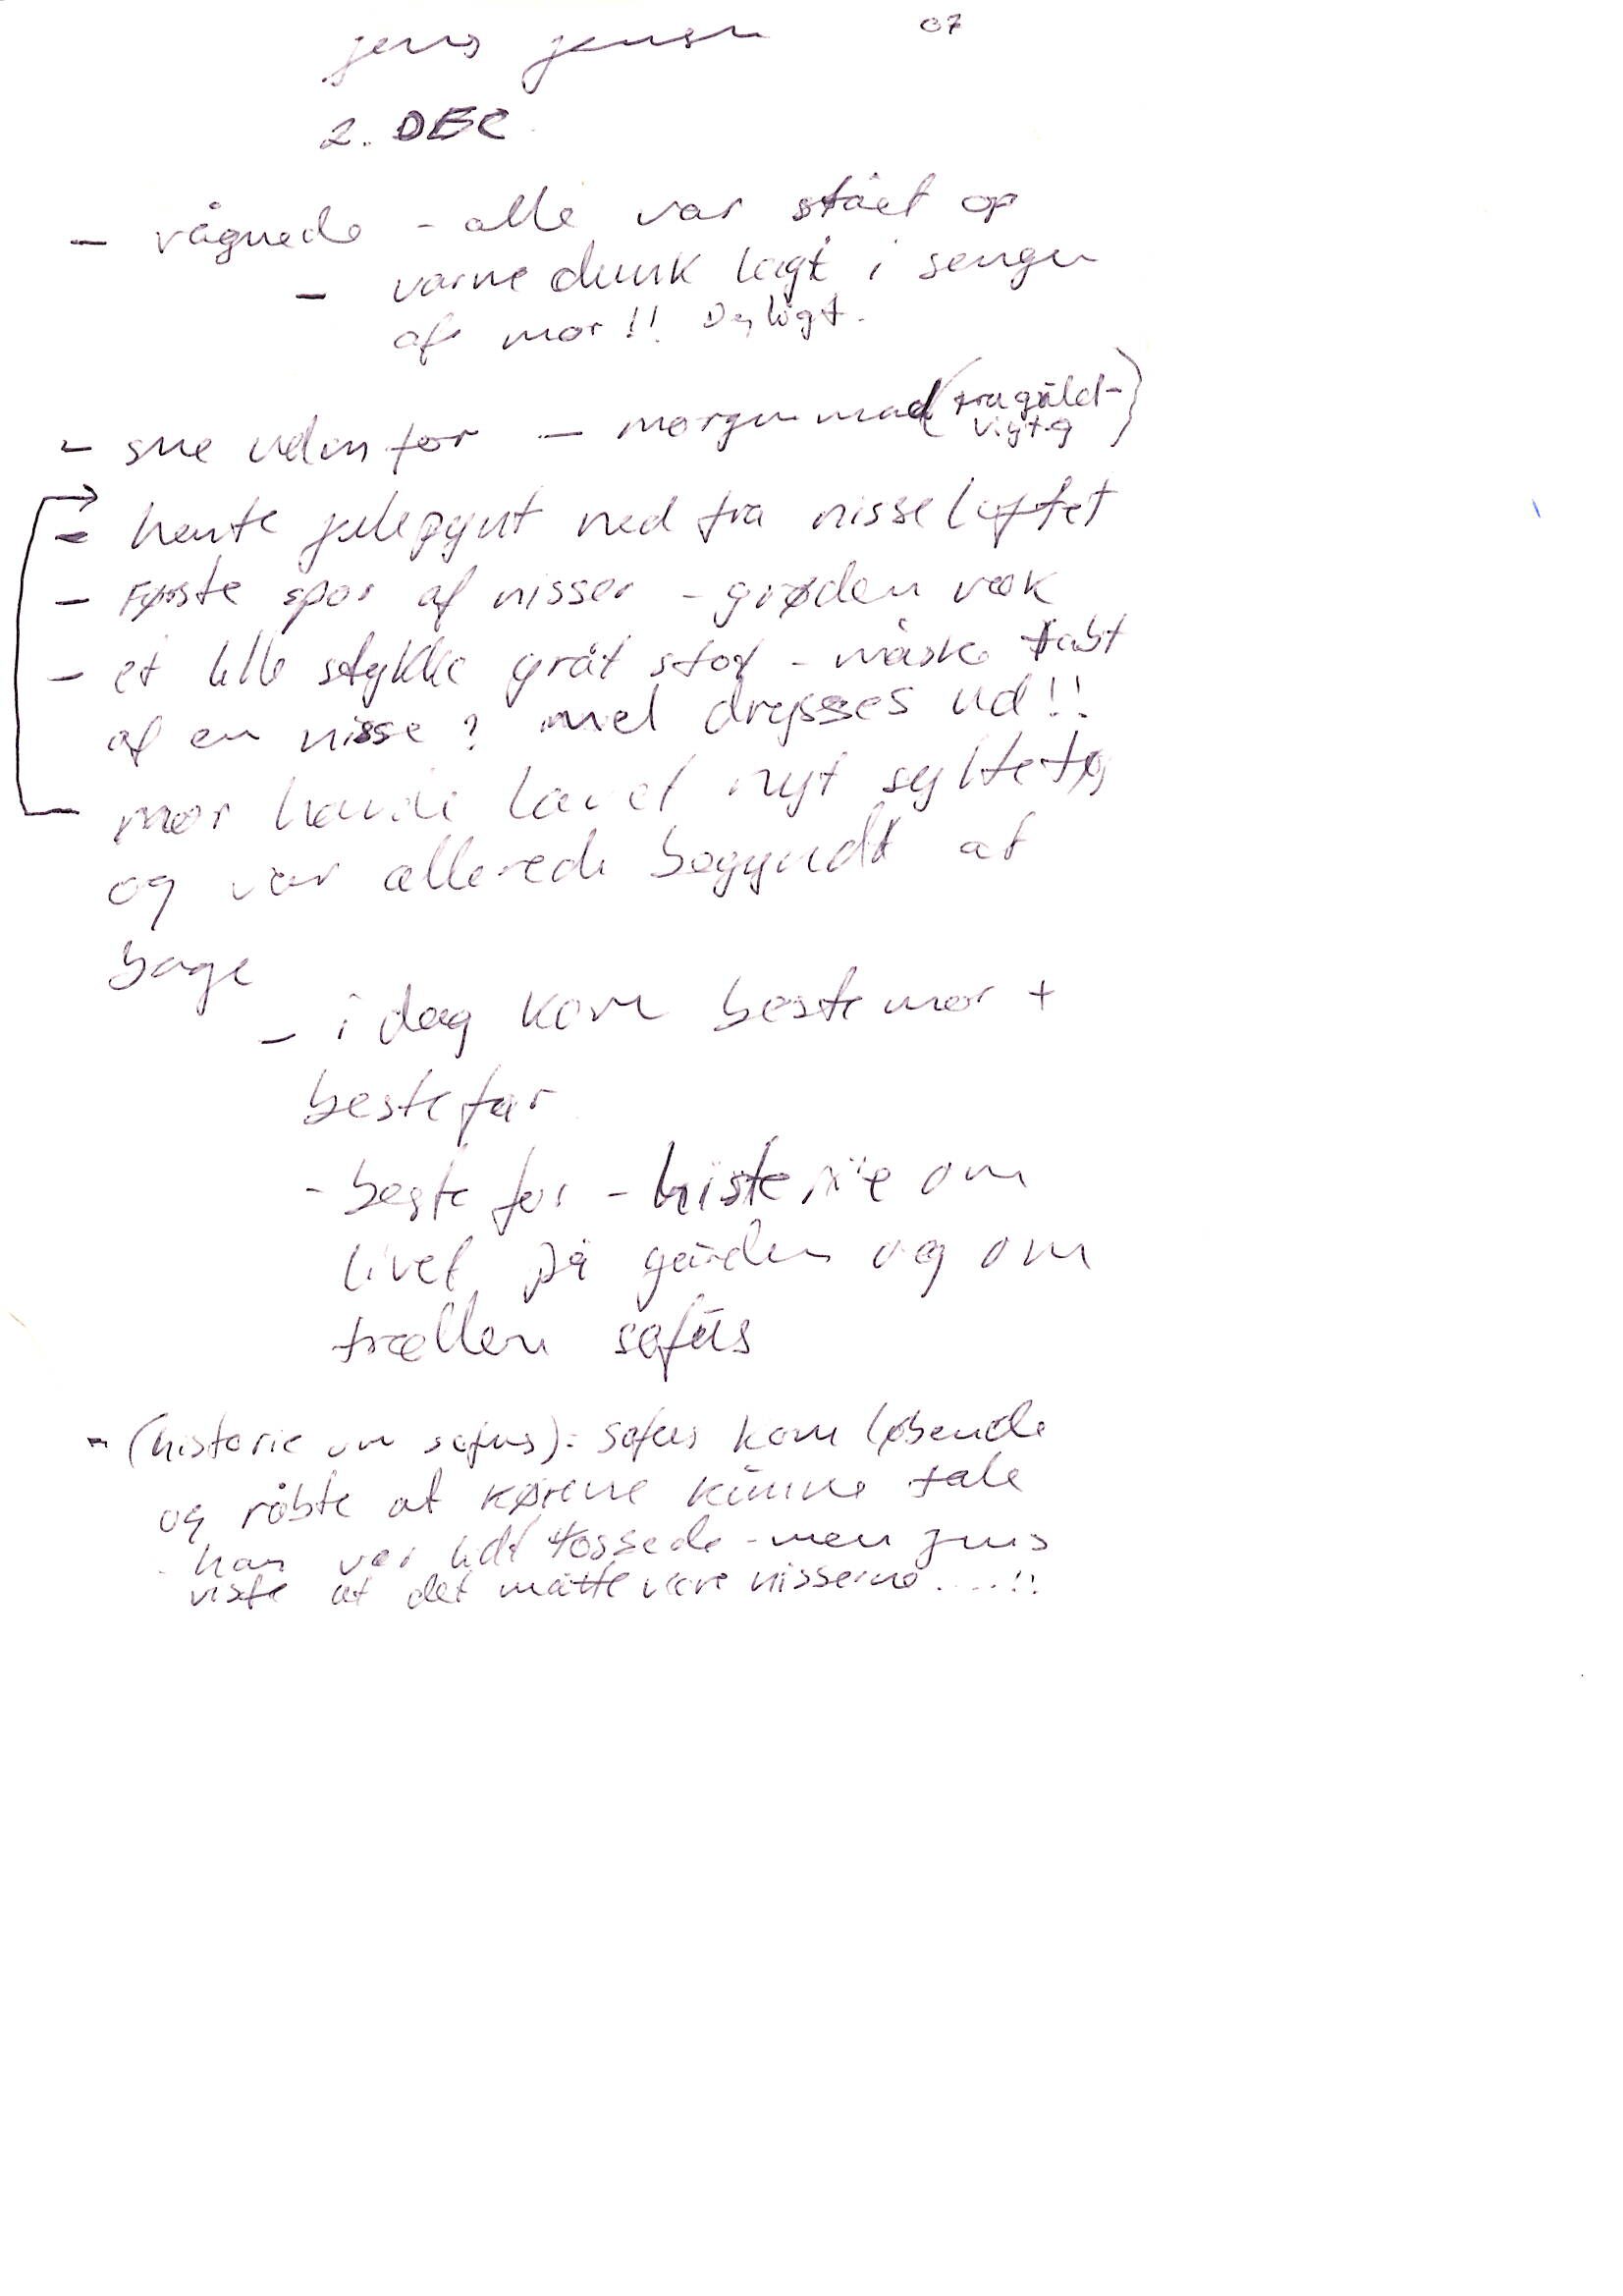 jens jensen 07
2. DEC
- vågnede - alle var stået op
- varmedunk lagt i sengen
af mor!! Dejligt.
- sne udenfor - morgenmad (fra
vigtig)
- hente julepynt ned fra nisseloftet
- Første spor af nisser - grøden væk
- et lille stykke gråt stof - måske tabt
af en nisse? mel drysses ud!!
mor havde lavet nyt syltetøj
og var allerede begyndt at
bage
- i dag kom bestemor +
bestefar
- bestefar - historie om
livet på gården og om
trællen sofus
- (historie om sofus): Sofus kom løbende
og råbte at køerne kunne tale
han var lidt tossede - men jens
viste at det måtte være nisserne ....!!